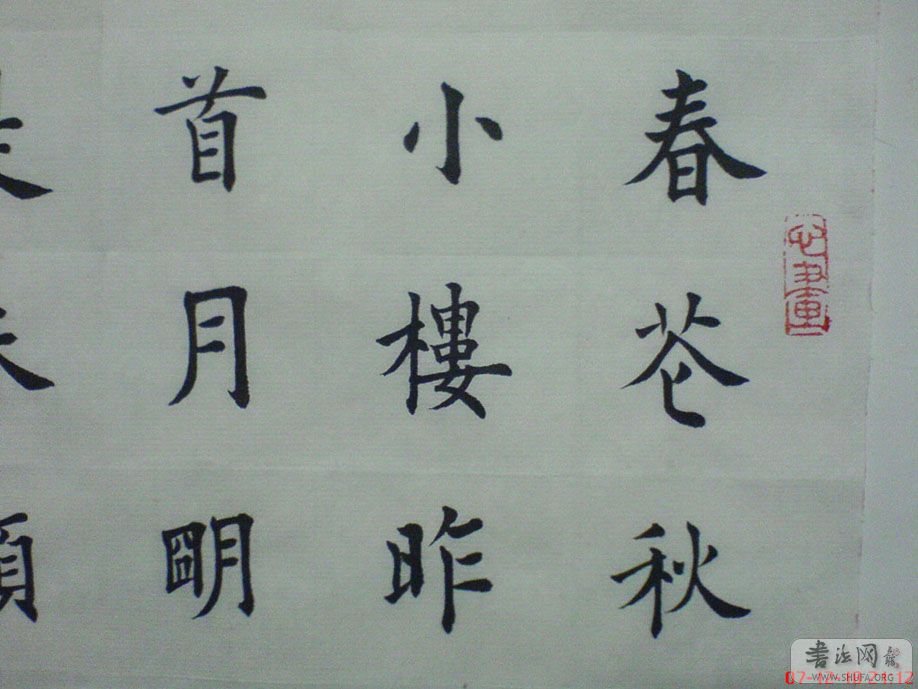 春花秋
小樓昨
首月明
心畫
書法网
WWW.SHUFA.ORG